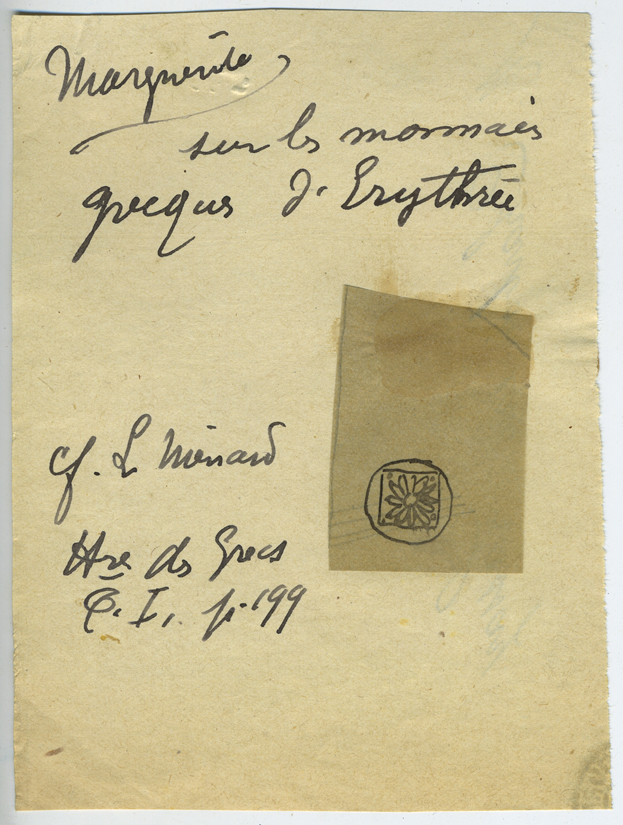 Marguerite
sur les monnaies
grecques d'Erythrée
cf. L Ménard
Hre des Grecs
T. I, p. 199